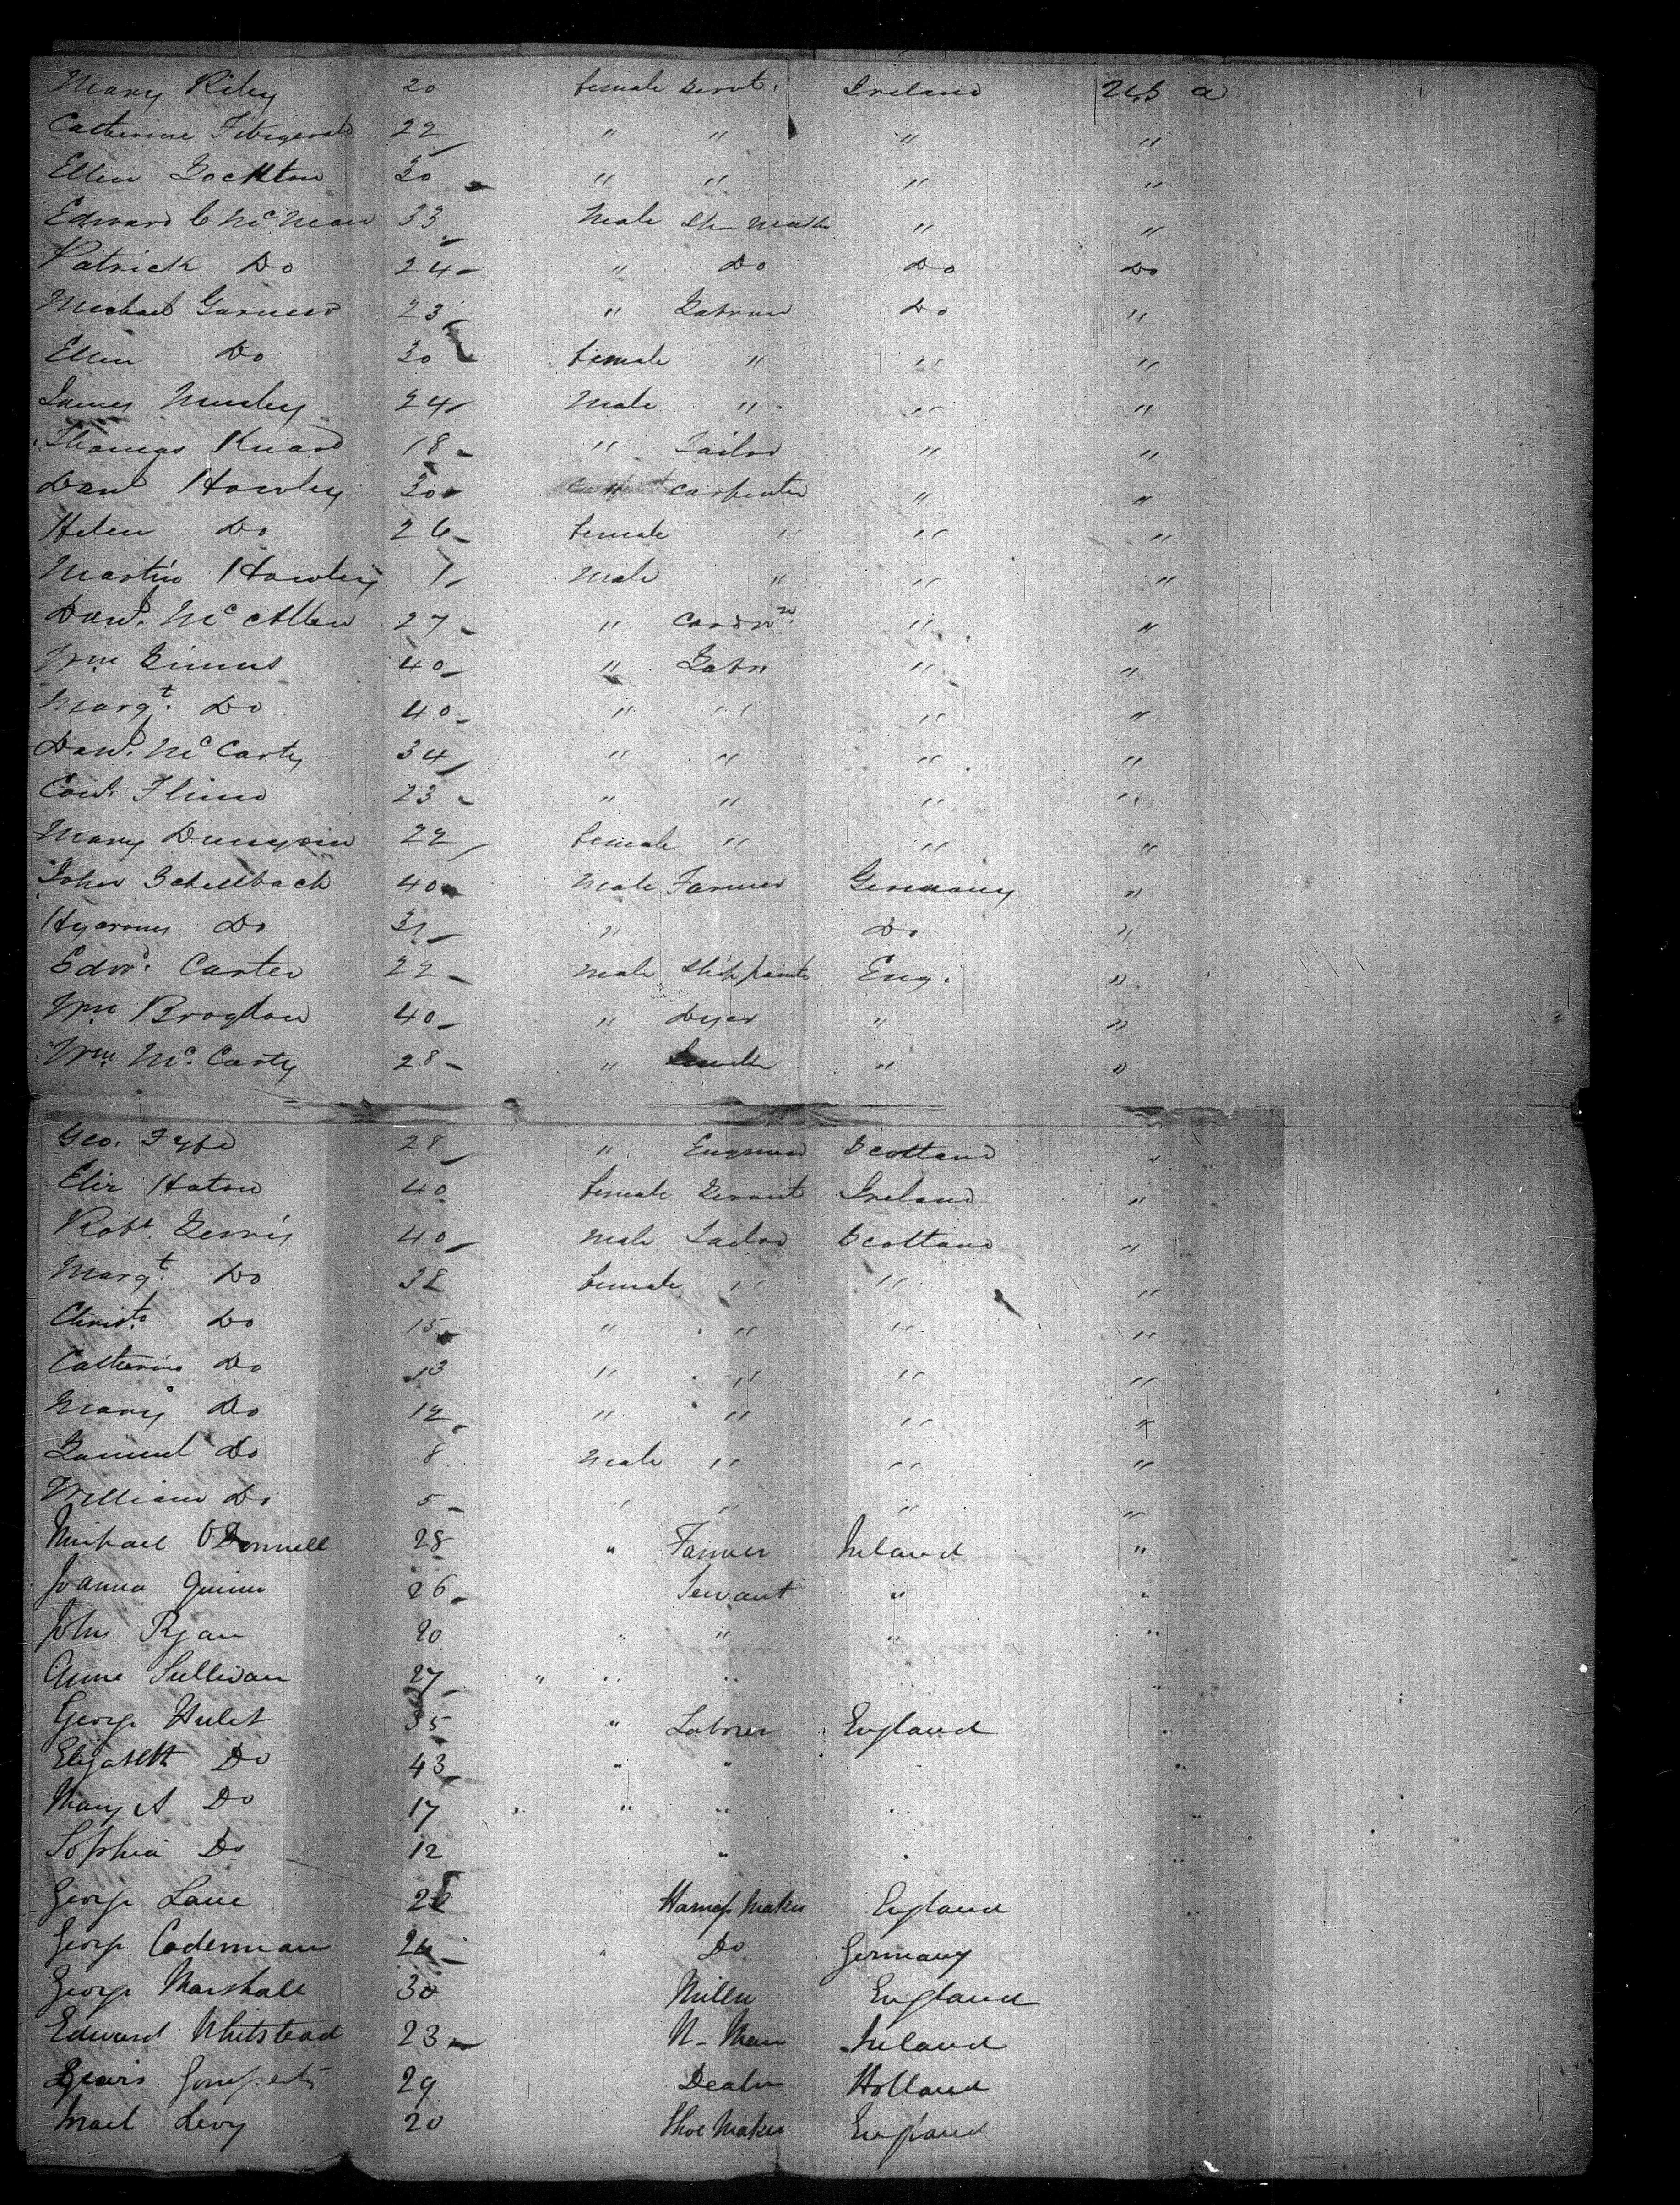 Mary Riley 20 female Servt. Ireland U.S a
Catherine Fitzgerald 22 " " " "
Ellen Lockton 30 " " " "
Edward C McMan 33 Male " "
Patrick Do 24 " Do Do Do
Michael 23 " Labourer Do "
Ellen Do 30 female " " "
James 24 Male " " "
Thomas 18 " Tailor " "
Danl Howley 30 " Carpenter " "
Helen Do 26 female " " "
Martin Howley 7 Male " " "
Danl. McAllen 27 " " "
Wm 40 " Labr " "
Margt. Do 40 " " " "
Danl. McCarty 34 " " " "
23 " " " "
Mary 22 female " " "
John Schellbach 40 Male Farmer Germany "
Do 31 " Do "
Edwd. Carter 22 Male Eng. "
Wm Brogdon 40 " Dyer " "
Wm. Mc.Carty 28 " " "
Geo. Fyfe 28 " Scotland "
Eliz 40 female Servant Ireland "
Robt. 40 Male Tailor Scotland "
Margt. Do 38 female " " "
Do 15 " " " "
Catherine Do 13 " " " "
Mary Do 12 " " " "
Samuel Do 8 Male " " "
William Do 5 " " " "
Michael O'Donnell 28 " Farmer Ireland "
Joanna Quinn 26 Servant " "
John Ryan 20 " " " "
Anne Sullivan 27 " " " " "
George Hulet 35 " Laborer England "
Elizabeth Do 43 " " " "
Mary A Do 17 " " " "
Sophia Do 12 " " "
George Lane Harness Maker England "
George 24 " Do Germany
George Marshall 30 Miller England
Edward Whitstead 23 Ireland
29 Dealer Holland
Israel Levy 20 Shoe Maker England